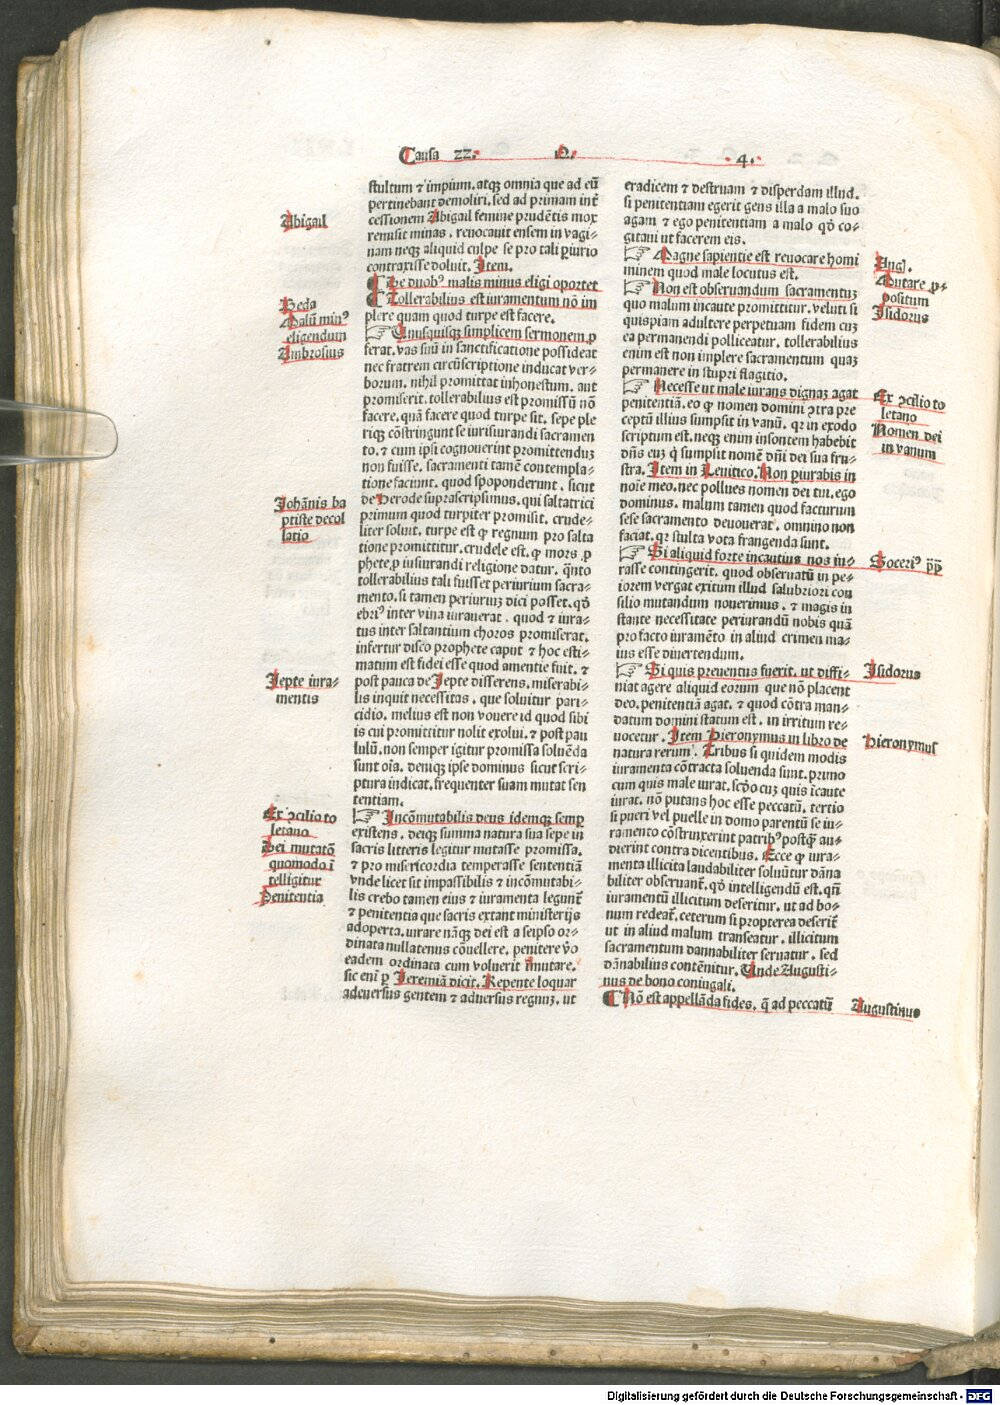 Causa 22. Q. 4.
stultum ⁊ impium. atqꝫ omnia que ad eũ
pertinebant demoliri. sed ad primam int̃
cessionem Abigail femine prudẽtis mox
remisit minas. reuocauit ensem in vagi-
nam neqꝫ aliquid culpe se pro tali ꝑiurio
contraxisse doluit. Item.
De duobꝰ malis minus eligi oportet
Tollerabilius est iuramentum nõ im
plere quam quod turpe est facere.
Unusquisqꝫ simplicem sermonem ꝓ
ferat. vas suũ in sanctificatione possideat
nec fratrem circũscriptione inducat ver-
borum. nihil promittat inhonestum. aut
promiserit. tollerabilius est promissũ nõ
facere. quã facere quod turpe sit. sepe ple
riqꝫ cõstringunt se iurisiurandi sacramen
to. ⁊ cum ipsi cognouerint promittenduꝫ
non fuisse. sacramenti tamẽ contempla-
tione faciunt. quod spoponderunt. sicut
de Herode suprascripsimus. qui saltatrici
primum quod turpiter promisit. crude-
liter soluit. turpe est ꝙ regnum pro salta
tione promittitur. crudele est. ꝙ mors ꝓ
phete ꝓ iusiurandi religione datur. q̃nto
tollerabilius tali fuisset periurium sacra-
mento. si tamen periuruꝫ dici posset. qð
ebriꝰ inter vina iurauerat. quod ⁊ iura-
tus inter saltantium choros promiserat.
infertur disco prophete caput ⁊ hoc esti-
matum est fidei esse quod amentie fuit. ⁊
post pauca de Jepte disserens. miserabi-
lis inquit necessitas. que soluitur pari-
cidio. melius est non vouere id quod sibi
is cui promittitur nolit exolui. ⁊ post pau
lulũ. non semper igitur promissa soluẽda
sunt oĩa. deniqꝫ ipse dominus sicut scri-
ptura indicat. frequenter suam mutat sen
tentiam.
Incõmutabilis deus idemqꝫ semꝑ
existens. deiqꝫ summa natura sua sepe in
sacris litteris legitur mutasse promissa.
⁊ pro misericordia temperasse sententiã
vnde licet sit impassibilis ⁊ incõmutabi-
lis crebo tamen eius ⁊ iuramenta legunt̃
⁊ penitentia que sacris extant ministerijs
adoperta. iurare nãqꝫ dei est a seipso or-
dinata nullatenus cõuellere. penitere ṽo
eadem ordinata cum voluerit ĩmutare.
sic enĩ ꝑ Jeremiã dicit. Repente loquar
aduersus gentem ⁊ aduersus regnuꝫ. ut
Abigail
Beda
Malũ minꝰ
eligendum
Ambrosius
Johãnis ba
ptiste decol
latio
Jepte iura-
mentis
Ex ↄcilio to
letano
Dei mutatõ
quomodo ĩ
telligitur
Penitentia
eradicem ⁊ destruam ⁊ disperdam illud.
si penitentiam egerit gens illa a malo suo
agam ⁊ ego penitentiam a malo qð co-
gitani ut facerem eis.
Magne sapientie est reuocare homi
minem quod male locutus est.
Non est obseruandum sacramentuꝫ
quo malum incaute promittitur. veluti si
quispiam adultere perpetuam fidem cuꝫ
ea permanendi polliceatur. tollerabilius
enim est non implere sacramentum quaꝫ
permanere in stupri flagitio.
Necesse ut male iurans dignaꝫ agat
penitentiam. eo ꝙ nomen domini ↄtra pre
ceptũ illius sumpsit in vanũ. qr in exodo
scriptum est. neqꝫ enim insontem habebit
dñs euꝫ q̇ sumpsit nomẽ dñi dei sua fru-
stra. Item in Leuitico. Non ꝑiurabis in
noĩe meo. nec pollues nomen dei tui. ego
dominus. malum tamen quod facturum
sese sacramento deuouerat. omnino non
faciat. qr stulta vota frangenda sunt.
Si aliquid forte incautius nos iu-
rasse contingerit. quod obseruatũ in pe-
iorem vergat exitum illud salubriori con
silio mutandum nouerimus. ⁊ magis in
stante necessitate periurandũ nobis quã
pro facto iuramẽto in aliud crimen ma-
ius esse diuertendum.
Si quis preuentus fuerit. ut diffi-
niat agere aliquid eorum que nõ placent
deo. penitentiã agat. ⁊ quod cõtra man-
datum domini statum est. in irritum re-
uocetur. Item Hieronymus in libro de
natura rerum. Tribus si quidem modis
iuramenta cõtracta soluenda sunt. primo
cum quis male iurat. scðo cuꝫ quis icaute
iurat. nõ putans hoc esse peccatũ. tertio
si pueri vel puelle in domo parentũ se iu-
ramento cõstruxerint patribꝰ postq̃ au-
dierint contra dicentibus. Ecce ꝙ iura-
menta illicita laudabiliter soluũtur dãna
biliter obseruant̃. qð intelligendũ est. qñ
iuramentũ illicitum deseritur. ut ad bo-
num redeat̃. ceterum si propterea deserit̃
ut in aliud malum transeatur. illicitum
sacramentum dannabiliter seruatur. sed
dãnabilius contẽnitur. Unde Augusti-
nus de bono coniugali.
Nõ est appellãda fides. q̃ ad peccatũ
Augꝰ.
Mutare ꝓ-
positum
Isidorus
Ex ↄcilio to
letano
Nomen dei
in vanum
Soceriꝰ p̃p̃
Isidorus
Hieronymus
Augustinus
Digitalisierung gefördert durch die Deutsche Forschungsgemeinschaft - DFG